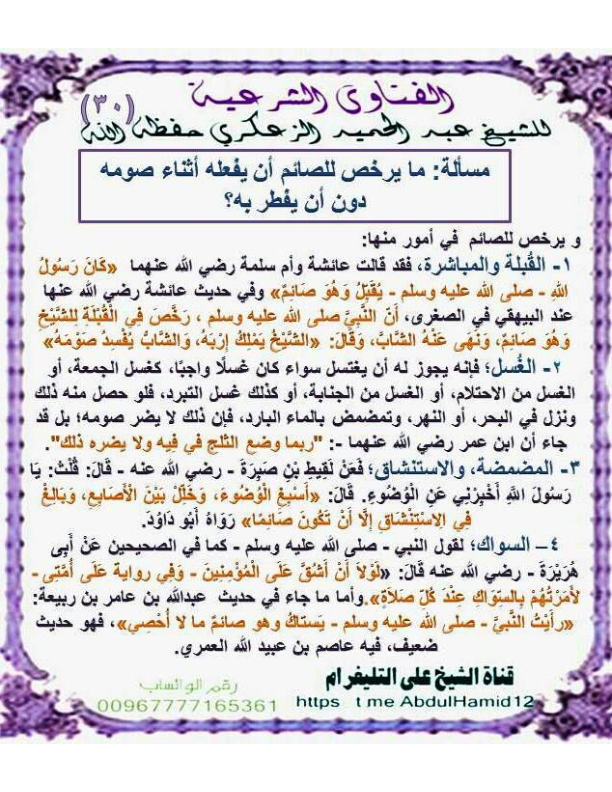 الفتاوى الشرعية (٣٠)
للشيخ عبد الحميد الزعكري حفظه الله
مسألة: ما يرخص للصائم أن يفعله أثناء صومه
دون أن يفطر به؟
و يرخص للصائم في أمور منها:
١- القُبلة والمباشرة، فقد قالت عائشة وأم سلمة رضي الله عنهما «كَانَ رَسُولُ
اللهِ - صلى الله عليه وسلم - يُقَبِّلُ وَهُوَ صَائِمٌ» وفي حديث عائشة رضي الله عنها
عند البيهقي في الصغرى، أَنَّ النَّبِيَّ صلى الله عليه وسلم ، رَخَّصَ فِي الْقُبْلَةِ لِلشَّيْخِ
وَهُوَ صَائِمٌ، وَنَهَى عَنْهُ الشَّابَّ، وَقَالَ: «الشَّيْخُ يَمْلِكُ إِرْبَهُ، وَالشَّابُّ يُفْسِدُ صَوْمَهُ»
٢- الغُسل؛ فإنه يجوز له أن يغتسل سواء كان غسلًا واجبًا، كغسل الجمعة، أو
الغسل من الاحتلام، أو الغسل من الجنابة، أو كذلك غسل التبرد، فلو حصل منه ذلك
ونزل في البحر، أو النهر، وتمضمض بالماء البارد، فإن ذلك لا يضر صومه؛ بل قد
جاء أن ابن عمر رضي الله عنهما -: "ربما وضع الثلج في فيه ولا يضره ذلك".
٣- المضمضة، والاستنشاق؛ فعَنْ لَقِيطِ بْنِ صَبِرَةَ - رضي الله عنه - قَالَ: قُلْتُ: يَا
رَسُولَ اللَّهِ أَخْبِرْنِي عَنِ الْوُضُوءِ. قَالَ: «أَسْبِغِ الْوُضُوءَ، وَخَلِّلْ بَيْنَ الْأَصَابِعِ، وَبَالِغْ
فِي الِاسْتِنْشَاقِ إِلَّا أَنْ تَكُونَ صَائِمًا» رَوَاهُ أَبُو دَاوُدَ.
٤– السواك؛ لقول النبي - صلى الله عليه وسلم - كما في الصحيحين عَنْ أَبِى
هُرَيْرَةَ - رضي الله عنه قَالَ: «لَوْلَا أَنْ أَشُقَّ عَلَى الْمُؤْمِنِينَ - وَفِي رواية عَلَى أُمَّتِى -
لأَمَرْتُهُمْ بِالسِّوَاكِ عِنْدَ كُلِّ صَلاَةٍ».وأما ما جاء في حديث عبدالله بن عامر بن ربيعة:
«رأَيْتُ النَّبِيَّ - صلى الله عليه وسلم - يَستاكُ وهو صائمٌ ما لا أُحْصِي»، فهو حديث
ضعيف، فيه عاصم بن عبيد الله العمري.
قناة الشيخ على التليفرام
https t.me AbdulHamid12
رقم الواتساب
00967777165361